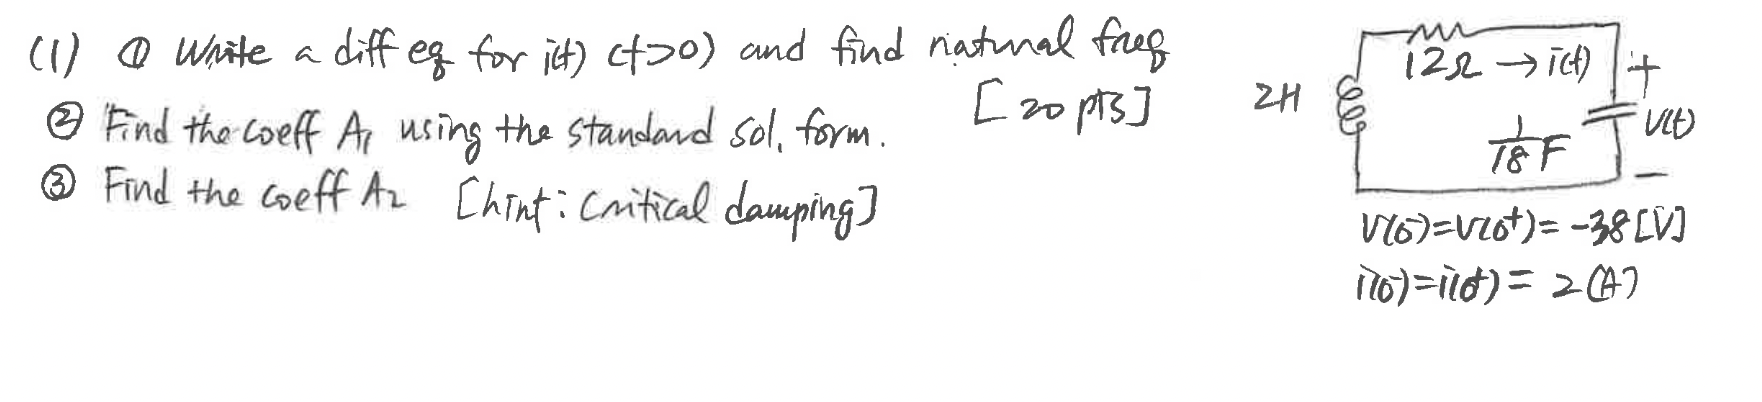 (1) ① Write a diff eq for i(t) (t>0) and find natural freq
[20 pts]
② Find the coeff A₁ using the standard sol. form.
③ Find the coeff A₂ [hint: Critical damping]
12Ω → i(t)
2H
+
1/18 F
V(t)
−
V(0⁻)=V(0⁺)= -38 [V]
i(0⁻)=i(0⁺)= 2 (A)